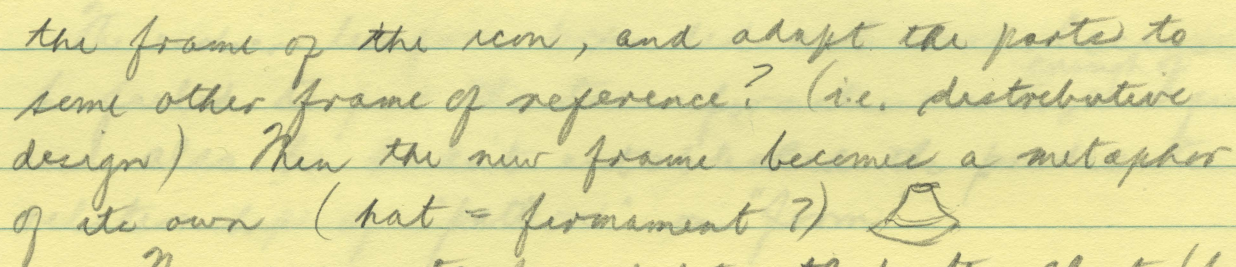 the frame of the icon, and adapt the parts to
some other frame of reference? (i.e. distributive
design) Then the new frame becomes a metaphor
of its own (hat = firmament?)